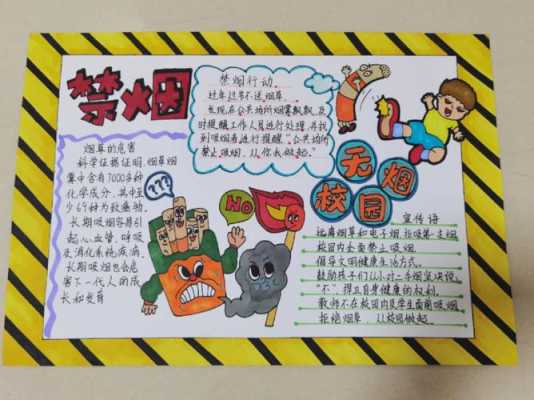 禁烟
禁烟行动
过年过节不送烟草。
发现在公共场所烟雾飘飘,及
时提醒工作人员进行处理,并找
到吸烟者进行提醒"公共场所
禁止吸烟,从你我做起。"
烟草的危害
科学证据证明,烟草烟
雾中含有7000多种
化学成分,其中至
少69种为致癌物。
长期吸烟容易引
起心血管、呼吸
及消化系统疾病。
长期吸烟也会危
害下一代人的成
长和发育
???
NO
无烟
校园
宣传语
远离烟草和电子烟,拒吸第一支烟
校园内全面禁止吸烟。
倡导文明健康生活方式。
鼓励孩子们从小对二手烟坚决说
"不",捍卫自身健康的权利。
教师不在校园内及学生面前吸烟
拒绝烟草,从校园做起。